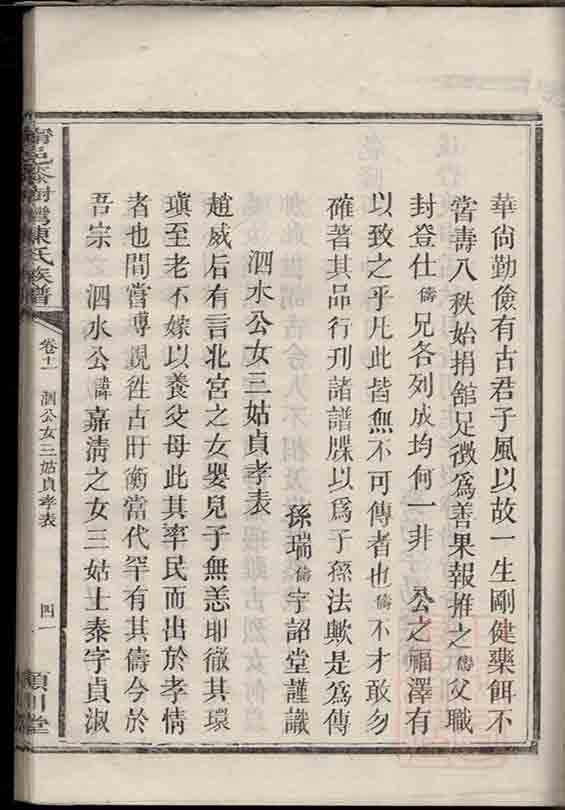 華尙勤儉有古君子風以故一生剛健藥餌不
嘗壽八秩始捐館足徵爲善果報推之儔父職
封登仕儔兄各列成均何一非 公之福澤有
以致之乎凡此皆無不可傳者也儔不才敢勿
確著其品行刊諸譜牒以爲子孫法歟是爲傳
孫瑞儔字詔堂謹識
泗水公女三姑貞孝表
趙威后有言北宮之女嬰兒子無恙耶徹其環
瑱至老不嫁以養父母此其率民而出於孝情
者也間嘗專覯徃古盱衡當代罕有其儔今於
吾宗 泗水公諱嘉淸之女三姑士泰字貞淑
甯邑泰樹灣陳氏族譜
卷十一 泗公女三姑貞孝表
四一
潁川堂